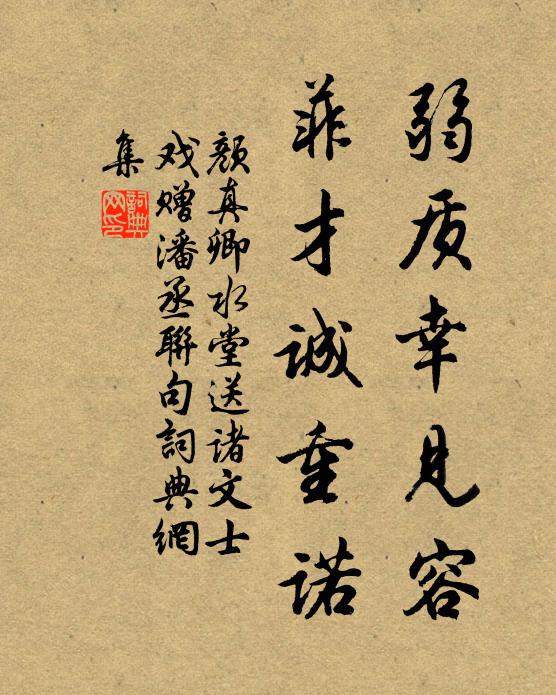 弱质幸見容
菲才誠重诺
顏真卿水堂送诸文士
戏赠潘丞聯句詞典網
集
詞典
网印